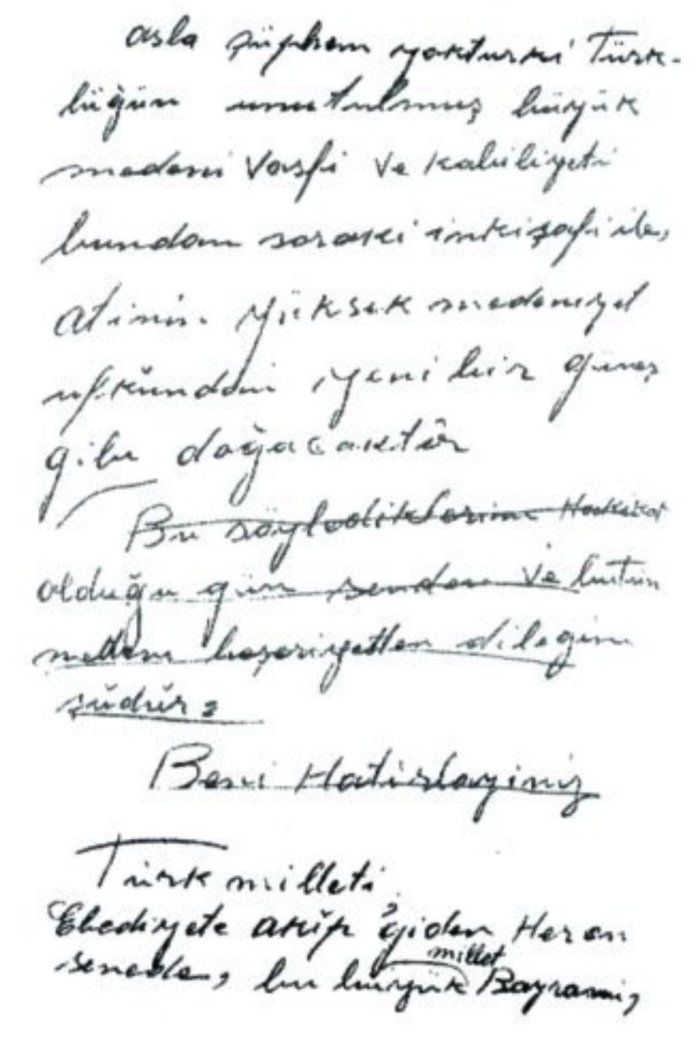 asla şüphem yokturki Türk-
lüğün unutulmuş büyük
medeni vasfi ve kabiliyeti
bundan sonraki inkişafi ile,
atinin yüksek medeniyet
ufkundan yeni bir güneş
gibi doğacaktür
Bu söylediklerim Hakikat
olduğu gün senden ve bütün
medeni beşeriyetten dileğim
şudur:
Beni Hatirlayiniz
Türk milleti
Ebediyete akip giden Her on
senede, bu büyük millet Bayrami,